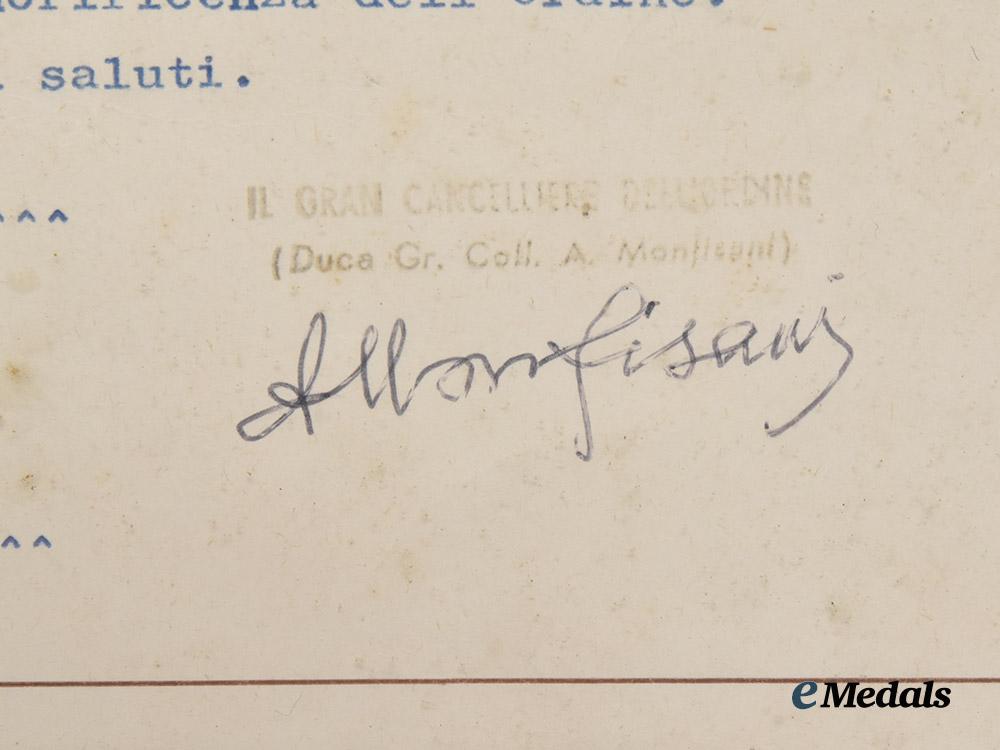 onorificenza dell'ordine.
saluti.
^^^
IL GRAN CANCELLIERE DELL'ORDINE
(Duca Gr. Coll. A. Monfisani)
AMonfisani
^^
eMedals